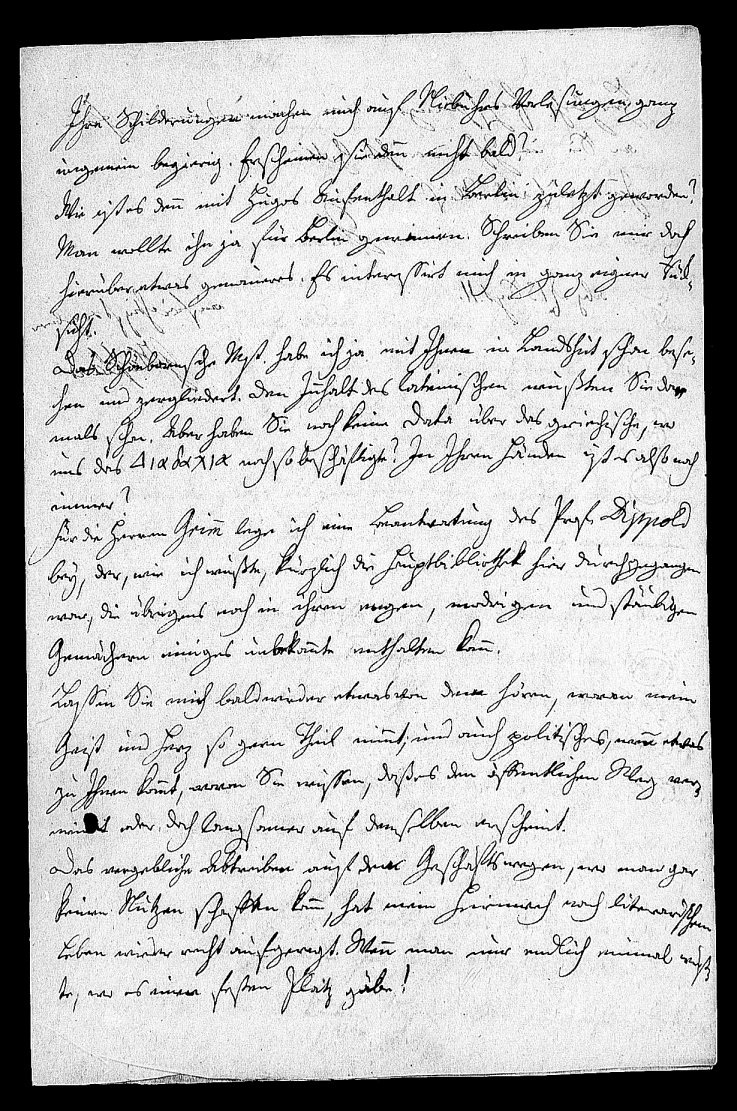 Ihre Schilderungen machen mich auf Niebuhrs Vorlesungen ganz
ungemein begierig. Erscheinen sie denn nicht bald?
Wie ist es denn mit Hugos Aufenthalt in Berlin zuletzt geworden?
Man wollte ihn ja für Berlin gewinnen. Schreiben Sie mir doch
hierüber etwas genaueres. Es interessirt mich in ganz eigner Rück-
sicht.
Das Schönbornsche Mst. habe ich ja mit Ihnen in Landshut schon bese-
hen und zergliedert. Den Innhalt des lateinischen wußten Sie da-
mals schon. Aber haben Sie noch keine Data über das griechische, wo
uns das Διαδαχια noch so beschäftigte? In Ihren Händen ist es also noch
immer?
Für die Herren Grimm lege ich eine Beantwortung des Prof. Dippold
bey, der, wie ich wußte, kürzlich die Hauptbibliothek hier durchgegangen
war, die übrigens noch in ihren engen, modrigen und staubigen
Gemächern einiges unbekannte enthalten kann.
Lassen Sie mich bald wieder etwas von dem hören, woran mein
Geist und Herz so gern Theil nimmt, und auch politisches, wenn etwas
zu Ihnen kömmt, wovon Sie wissen, daß es den öffentlichen Weg ver-
meidet oder doch langsamer auf demselben erscheint.
Das vergebliche Abtreiben auf dem Geschäftswegen, wo man gar
keinen Nutzen schaffen kann, hat mein Heimweh nach literarischem
Leben wieder recht aufgeregt. Wenn man nur endlich einmal wüß-
te, wo es einen festen Platz gäbe!